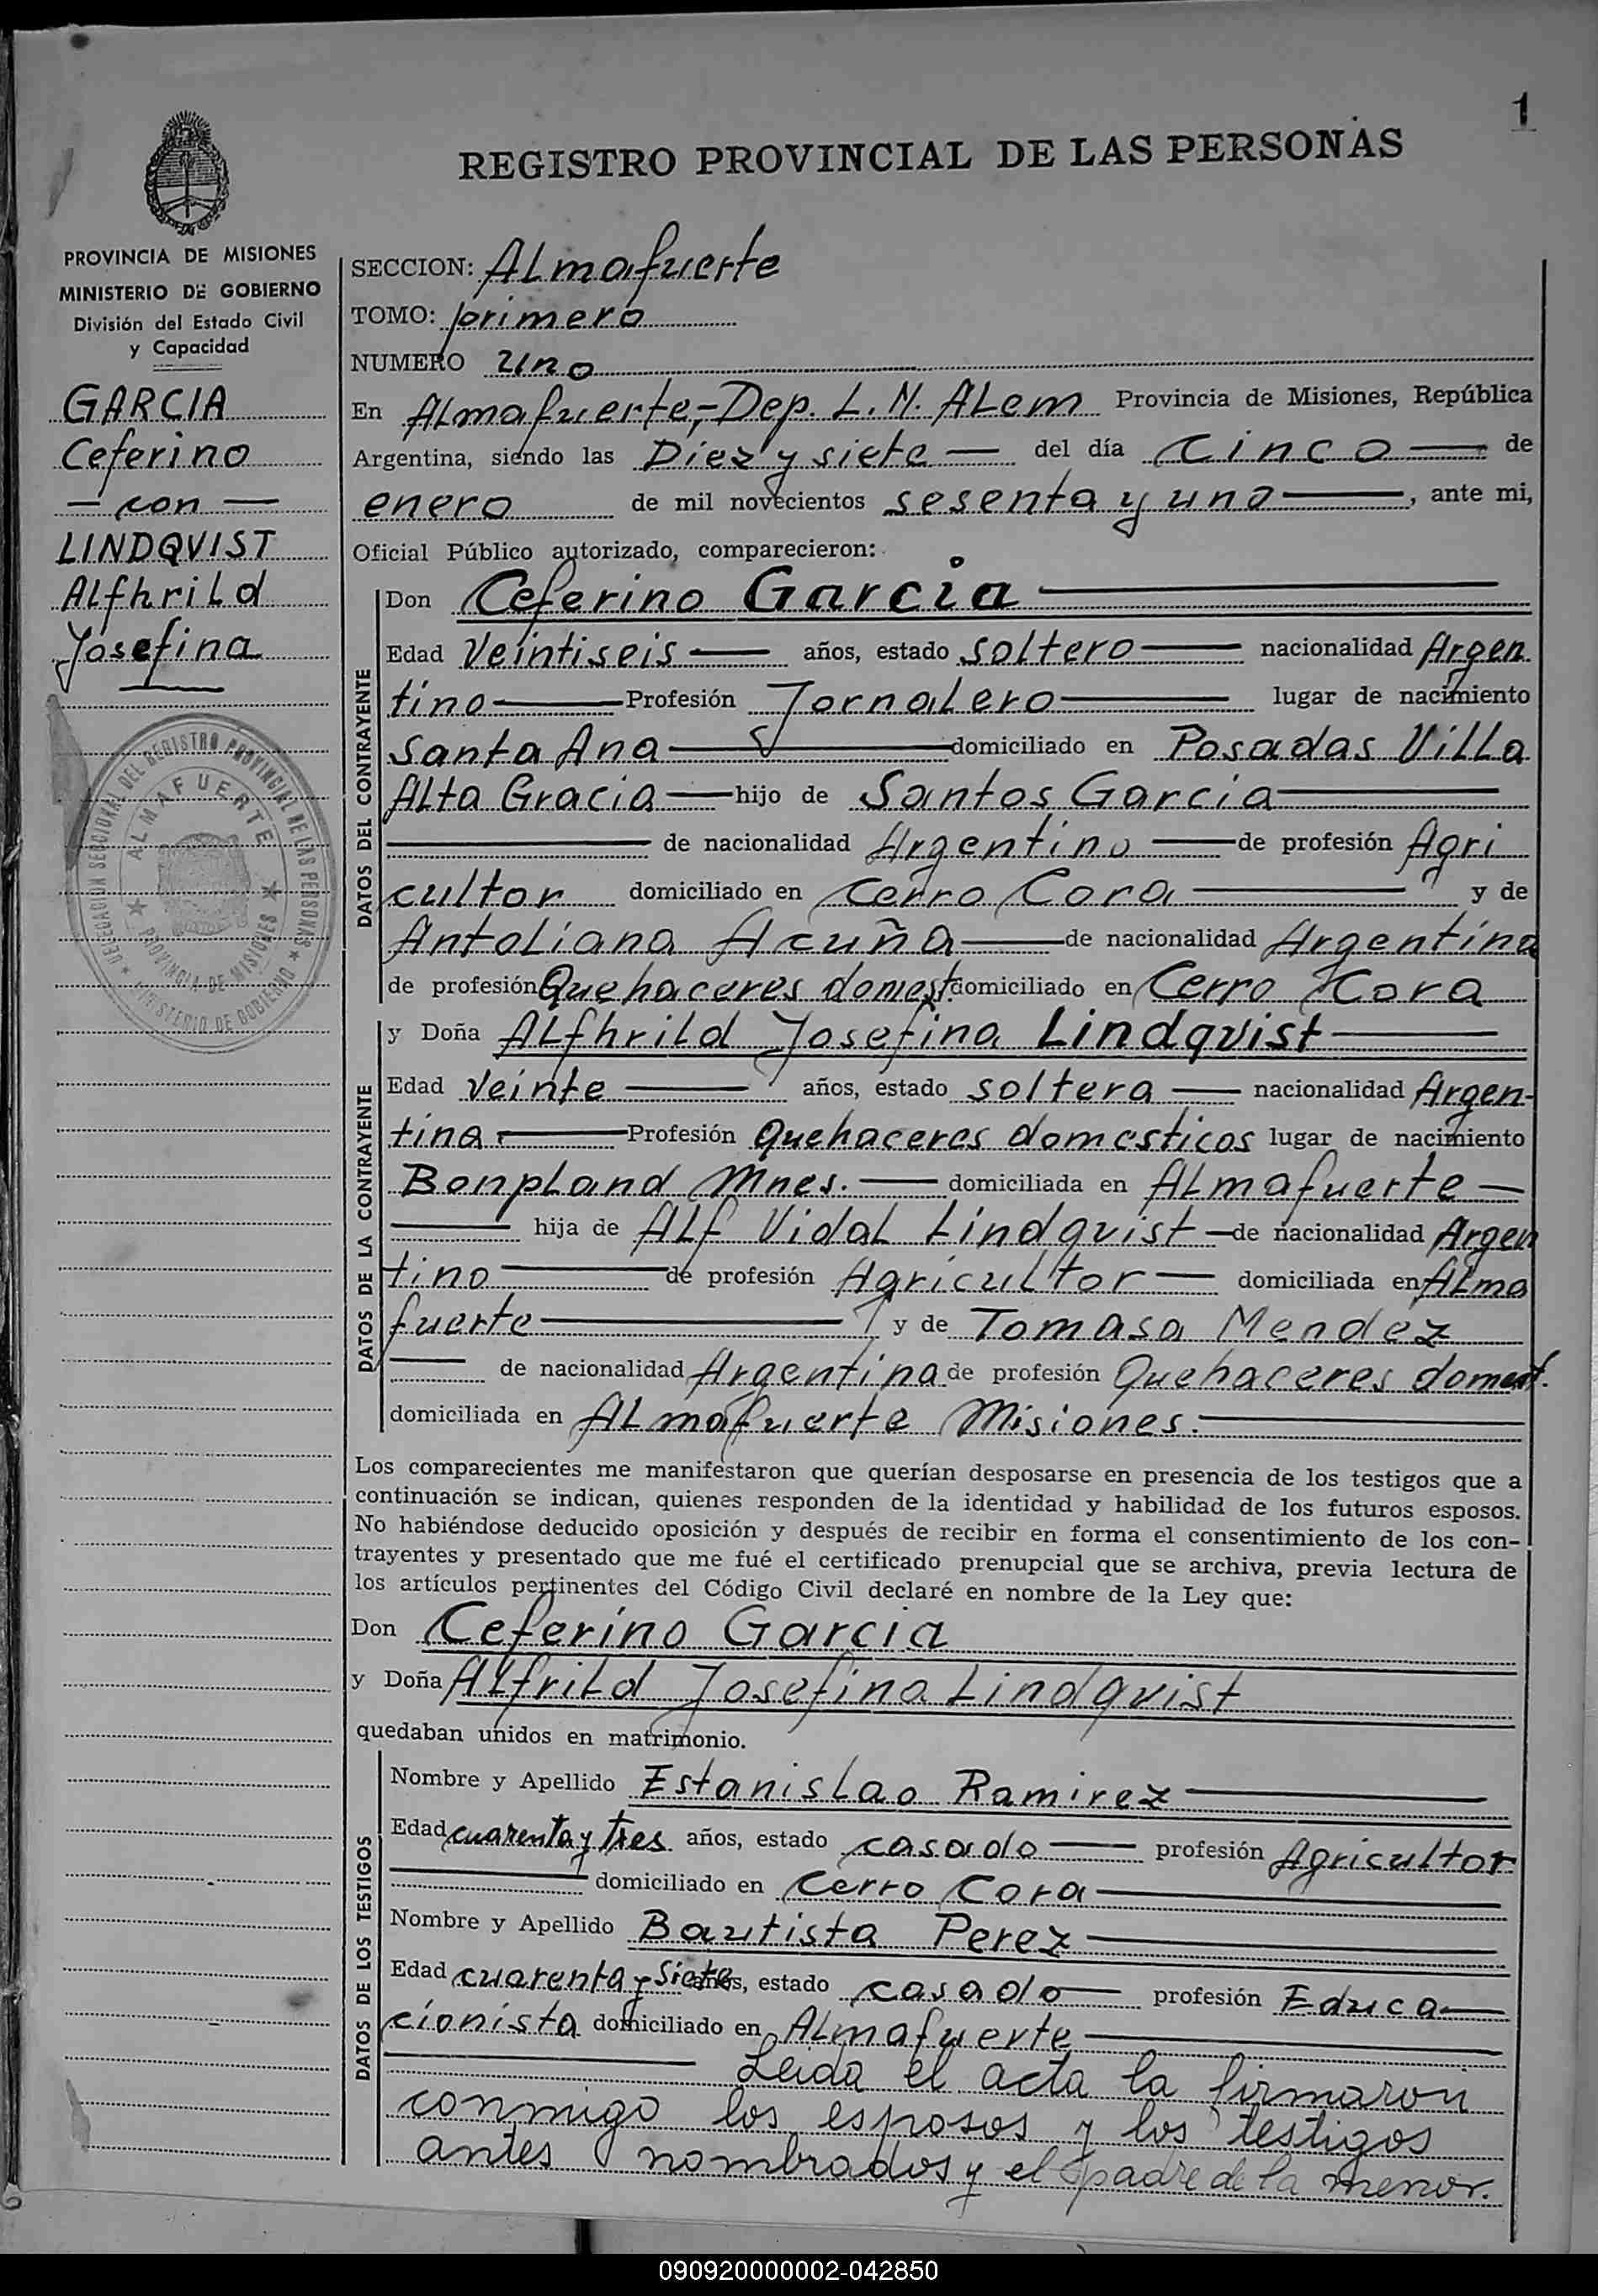 1
REGISTRO PROVINCIAL DE LAS PERSONAS
PROVINCIA DE MISIONES
MINISTERIO DE GOBIERNO
División del Estado Civil
y Capacidad
GARCIA
Ceferino
— con —
LINDQVIST
Alfhrild
Josefina
DELEGACION SECCIONAL DEL REGISTRO PROVINCIAL DE LAS PERSONAS
ALMAFUERTE
PROVINCIA DE MISIONES
MINISTERIO DE GOBIERNO
SECCION: Almafuerte
TOMO: primero
NUMERO Uno
En Almafuerte,- Dep. L. N. Alem Provincia de Misiones, República
Argentina, siendo las Diez y siete — del día Cinco — de
enero de mil novecientos sesenta y uno —, ante mi,
Oficial Público autorizado, comparecieron:
DATOS DEL CONTRAYENTE
Don Ceferino Garcia —
Edad Veintiseis — años, estado soltero — nacionalidad Argen
tino — Profesión Jornalero — lugar de nacimiento
Santa Ana — domiciliado en Posadas Villa
Alta Gracia — hijo de Santos Garcia —
— de nacionalidad Argentino — de profesión Agri
cultor domiciliado en Cerro Cora — y de
Antoliana Acuña — de nacionalidad Argentina
de profesión Quehaceres domest. domiciliado en Cerro Cora
DATOS DE LA CONTRAYENTE
y Doña Alfhrild Josefina Lindqvist —
Edad Veinte — años, estado soltera — nacionalidad Argen-
tina — Profesión Quehaceres domesticos lugar de nacimiento
Bonpland Mnes. — domiciliada en Almafuerte —
— hija de Alf Vidal Lindqvist — de nacionalidad Argen
tino — de profesión Agricultor — domiciliada en Alma
fuerte — y de Tomasa Mendez
— de nacionalidad Argentina de profesión Quehaceres domest.
domiciliada en Almafuerte Misiones. —
Los comparecientes me manifestaron que querían desposarse en presencia de los testigos que a
continuación se indican, quienes responden de la identidad y habilidad de los futuros esposos.
No habiéndose deducido oposición y después de recibir en forma el consentimiento de los con-
trayentes y presentado que me fué el certificado prenupcial que se archiva, previa lectura de
los artículos pertinentes del Código Civil declaré en nombre de la Ley que:
Don Ceferino Garcia
y Doña Alfrild Josefina Lindqvist
quedaban unidos en matrimonio.
DATOS DE LOS TESTIGOS
Nombre y Apellido Estanislao Ramirez —
Edad cuarenta y tres años, estado casado — profesión Agricultor
— domiciliado en Cerro Cora —
Nombre y Apellido Bautista Perez —
Edad cuarenta y siete años, estado casado — profesión Educa—
cionista domiciliado en Almafuerte —
— Leida el acta la firmaron
conmigo los esposos y los testigos
antes nombrados y el padre de la menor.
090920000002-042850